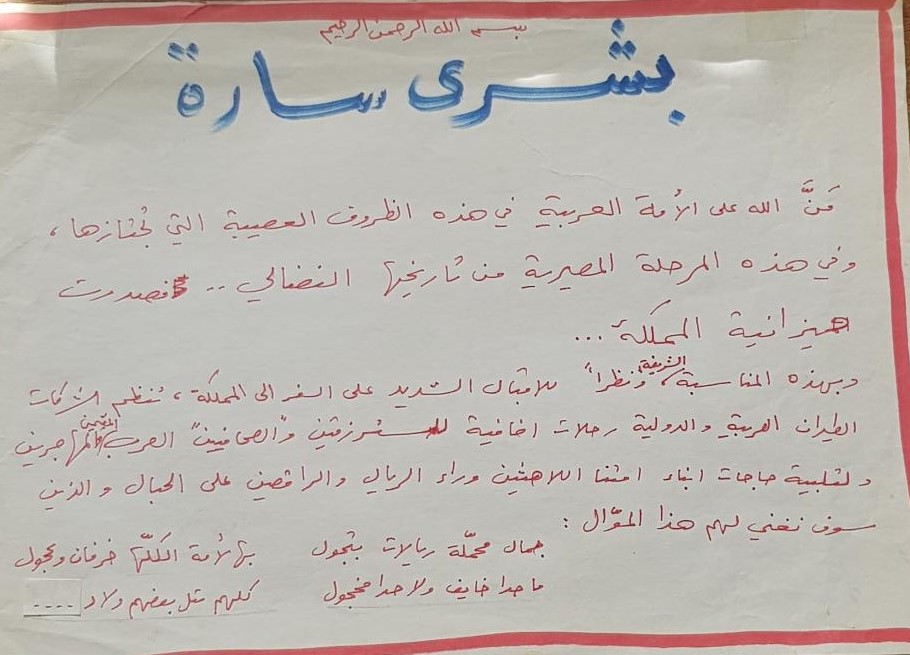 بسم الله الرحمن الرحيم
بشرى سارة
مَنَّ الله على الأمة العربية في هذه الظروف العصيبة التي تجتازها،
وفي هذه المرحلة المصيرية من تاريخها النضالي .. فصدرت
ميزانية المملكة...
وبهذه المناسبة الشريفة، ونظراً للاقبال الشديد على السفر الى المملكة، تنظم شركات
الطيران العربية والدولية رحلات اضافية للمسترزقين و"الصحافيين" العرب المقيمين والمهاجرين
ولتلبية حاجات ابناء امتنا اللاهثين وراء الريال والراقصين على الحبال والذين
سوف نغني لهم هذا الموّال :
جمال محمّلة ريالات بتجول بهالأمة الكلّها خرفان وعجول
ما حدا خايف ولا حدا مخجول كلهم متل بعضهم ولاد ....